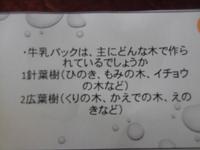 ・牛乳パックは、主にどんな木で作ら
れているでしょうか
1針葉樹(ひのき、もみの木、イチョウ
の木など)
2広葉樹(くりの木、かえでの木、えの
きなど)